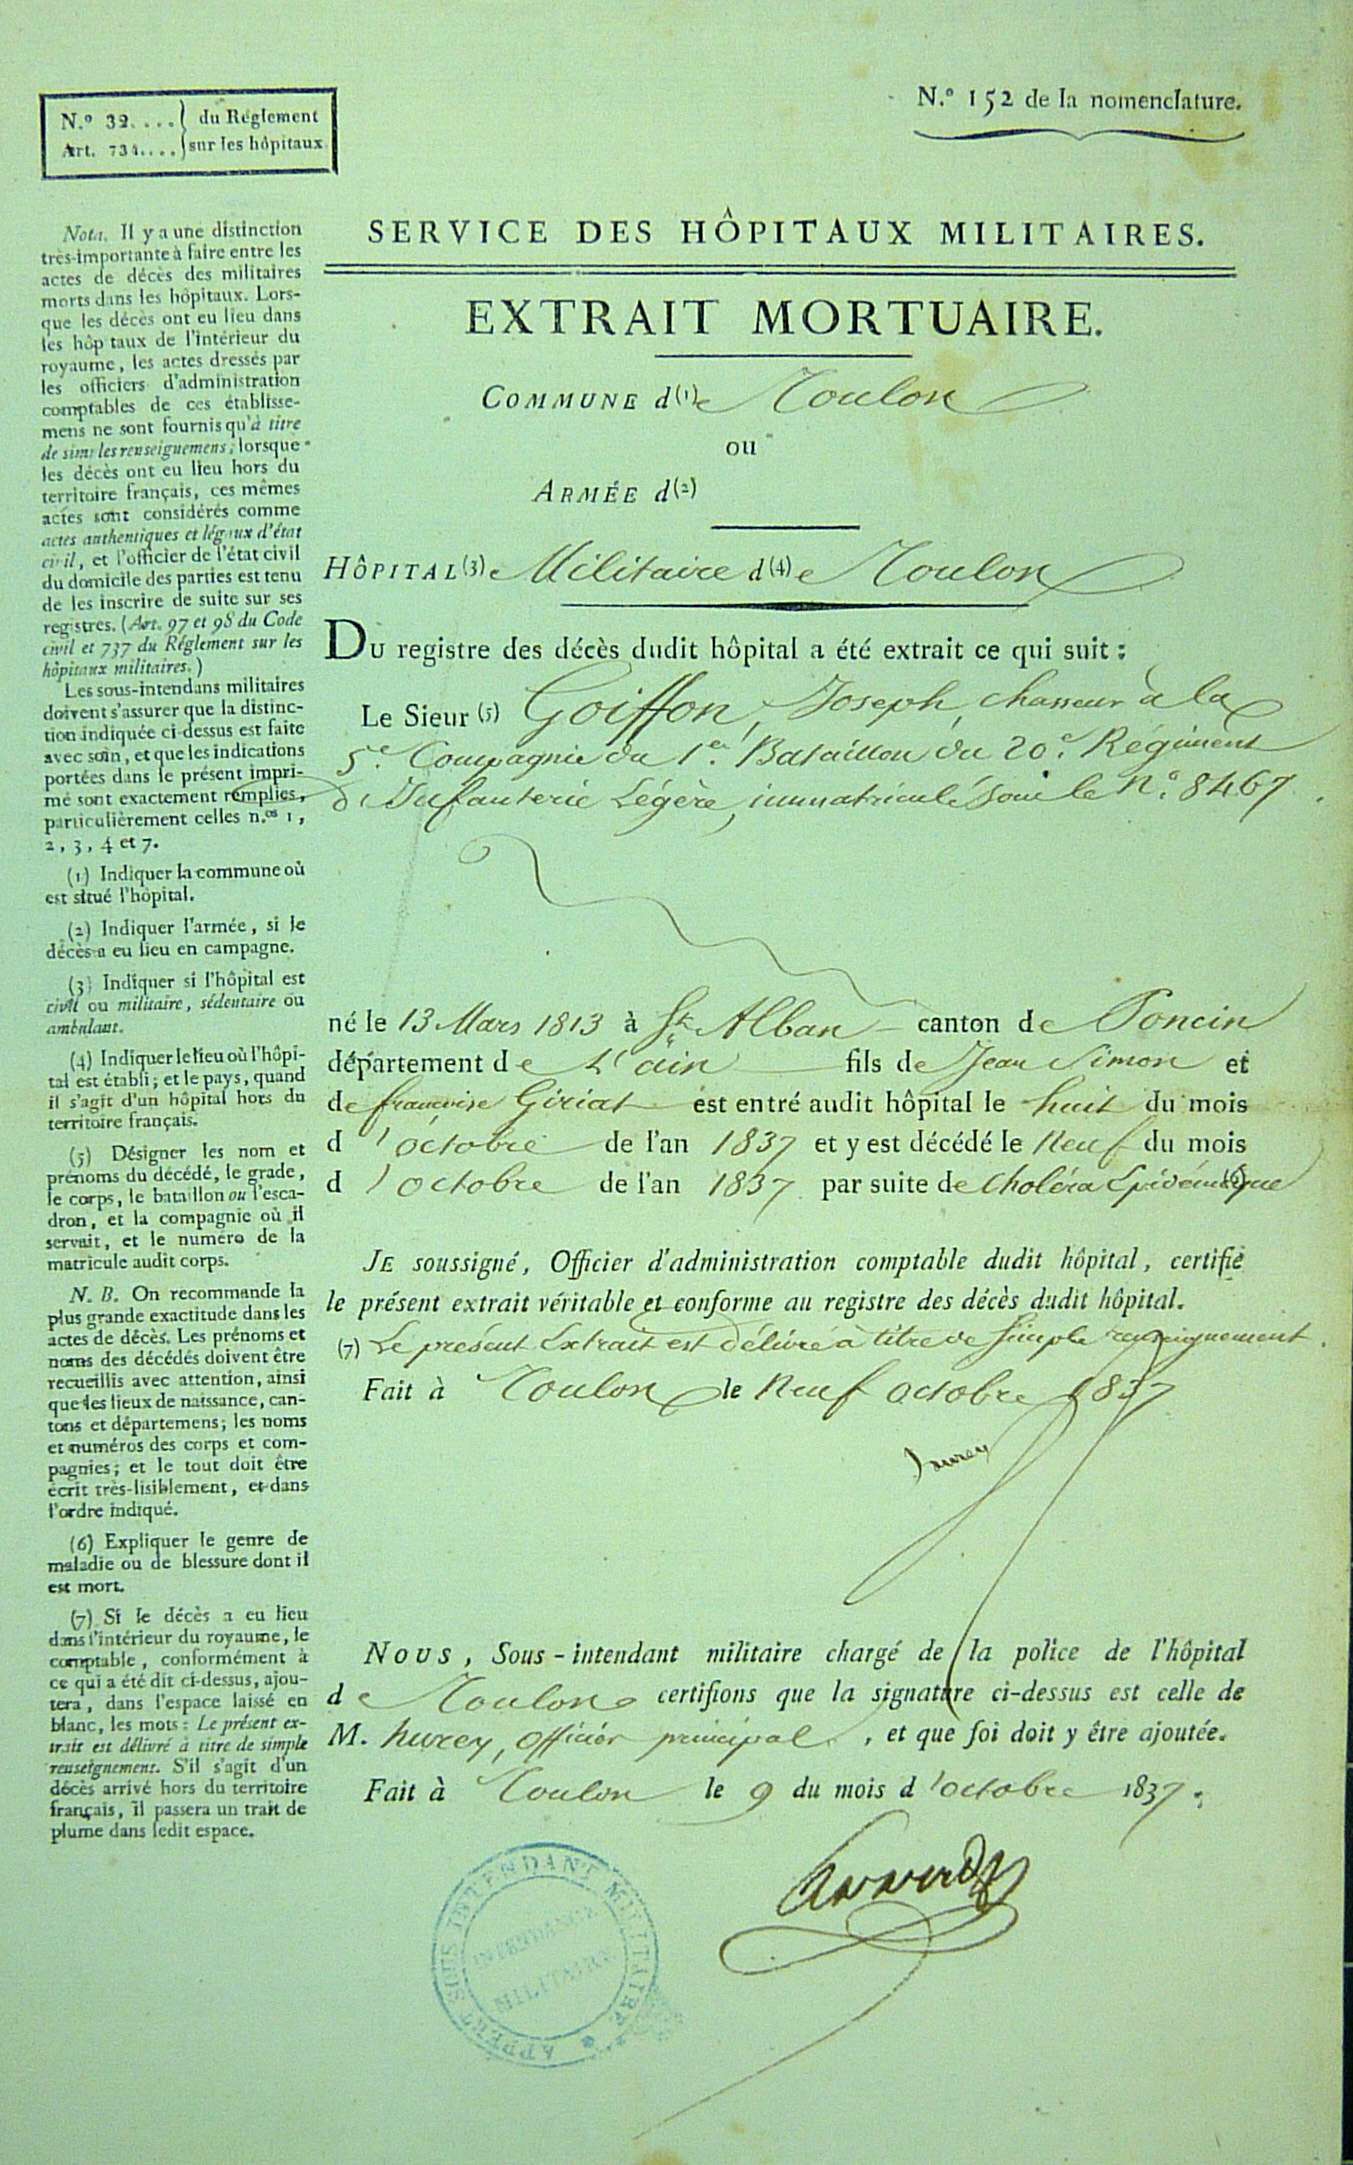 N.º 32.... } du Réglement
Art. 734.... } sur les hôpitaux
N.º 152 de la nomenclature.
SERVICE DES HÔPITAUX MILITAIRES.
EXTRAIT MORTUAIRE.
COMMUNE d(1)e Toulon
ou
ARMÉE d(2)
HÔPITAL(3)e Militaire d(4)e Toulon
DU registre des décès dudit hôpital a été extrait ce qui suit :
Le Sieur (5) Goiffon, Joseph, chasseur à la
5e. Compagnie du 1er. Bataillon du 20e. Régiment
d'Infanterie Légère, immatriculé sous le N.º 8467.
né le 13 Mars 1813 à St. Alban canton de Poncin
département de L'ain fils de Jean Simon et
de francoise Giriat est entré audit hôpital le huit du mois
d'octobre de l'an 1837 et y est décédé le Neuf du mois
d'octobre de l'an 1837 par suite de Choléra Epidémique (6)
JE soussigné, Officier d'administration comptable dudit hôpital, certifie
le présent extrait véritable et conforme au registre des décès dudit hôpital.
(7) Le présent Extrait est délivré à titre de Simple renseignement.
Fait à Toulon le Neuf octobre 1837
hurey
NOUS, Sous-intendant militaire chargé de la police de l'hôpital
de Toulon certifions que la signature ci-dessus est celle de
M. hurey, officier principal, et que foi doit y être ajoutée.
Fait à Toulon le 9 du mois d'octobre 1837.
SOUS INTENDANT MILITAIRE
INTENDANCE
MILITAIRE
Nota. Il y a une distinction
très-importante à faire entre les
actes de décès des militaires
morts dans les hôpitaux. Lors-
que les décès ont eu lieu dans
les hôp taux de l'intérieur du
royaume, les actes dressés par
les officiers d'administration
comptables de ces établisse-
mens ne sont fournis qu'à titre
de simples renseignemens; lorsque
les décès ont eu lieu hors du
territoire français, ces mêmes
actes sont considérés comme
actes authentiques et légaux d'état
civil, et l'officier de l'état civil
du domicile des parties est tenu
de les inscrire de suite sur ses
registres. (Art. 97 et 98 du Code
civil et 737 du Réglement sur les
hôpitaux militaires.)
Les sous-intendans militaires
doivent s'assurer que la distinc-
tion indiquée ci-dessus est faite
avec soin, et que les indications
portées dans le présent impri-
mé sont exactement remplies,
particulièrement celles n.os 1,
2, 3, 4 et 7.
(1) Indiquer la commune où
est situé l'hôpital.
(2) Indiquer l'armée, si le
décès a eu lieu en campagne.
(3) Indiquer si l'hôpital est
civil ou militaire, sédentaire ou
ambulant.
(4) Indiquer le lieu où l'hôpi-
tal est établi; et le pays, quand
il s'agit d'un hôpital hors du
territoire français.
(5) Désigner les nom et
prénoms du décédé, le grade,
le corps, le bataillon ou l'esca-
dron, et la compagnie où il
servait, et le numéro de la
matricule audit corps.
N. B. On recommande la
plus grande exactitude dans les
actes de décès. Les prénoms et
noms des décédés doivent être
recueillis avec attention, ainsi
que les lieux de naissance, can-
tons et départemens; les noms
et numéros des corps et com-
pagnies; et le tout doit être
écrit très-lisiblement, et dans
l'ordre indiqué.
(6) Expliquer le genre de
maladie ou de blessure dont il
est mort.
(7) Si le décès a eu lieu
dans l'intérieur du royaume, le
comptable, conformément à
ce qui a été dit ci-dessus, ajou-
tera, dans l'espace laissé en
blanc, les mots: Le présent ex-
trait est délivré à titre de simple
renseignement. S'il s'agit d'un
décès arrivé hors du territoire
français, il passera un trait de
plume dans ledit espace.